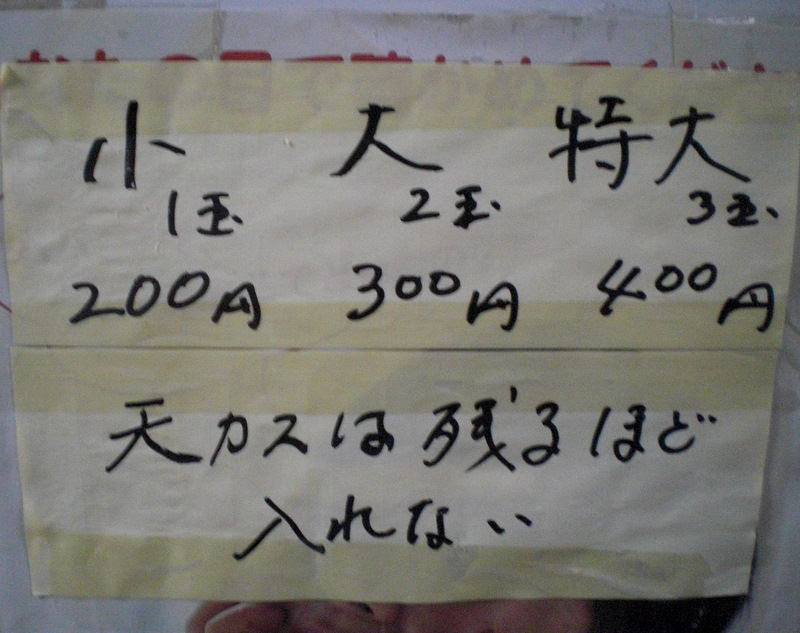 小 大 特大
1玉 2玉 3玉
200円 300円 400円
天カスは残るほど
入れない